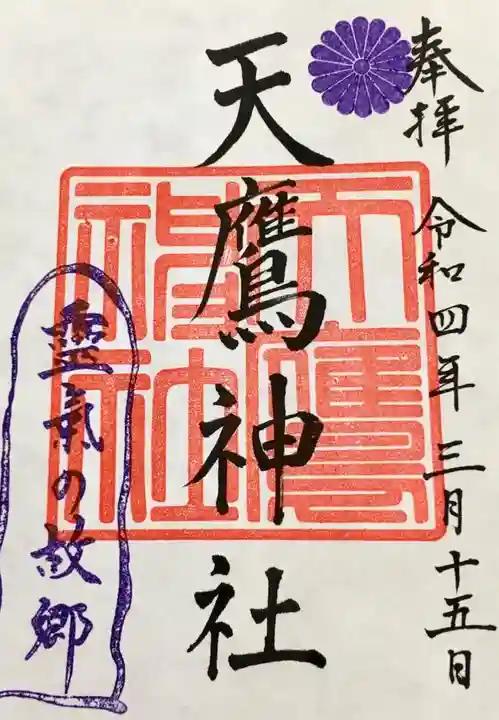 奉拝 令和四年三月十五日
天鷹神社
天鷹神社
霊氣の故郷